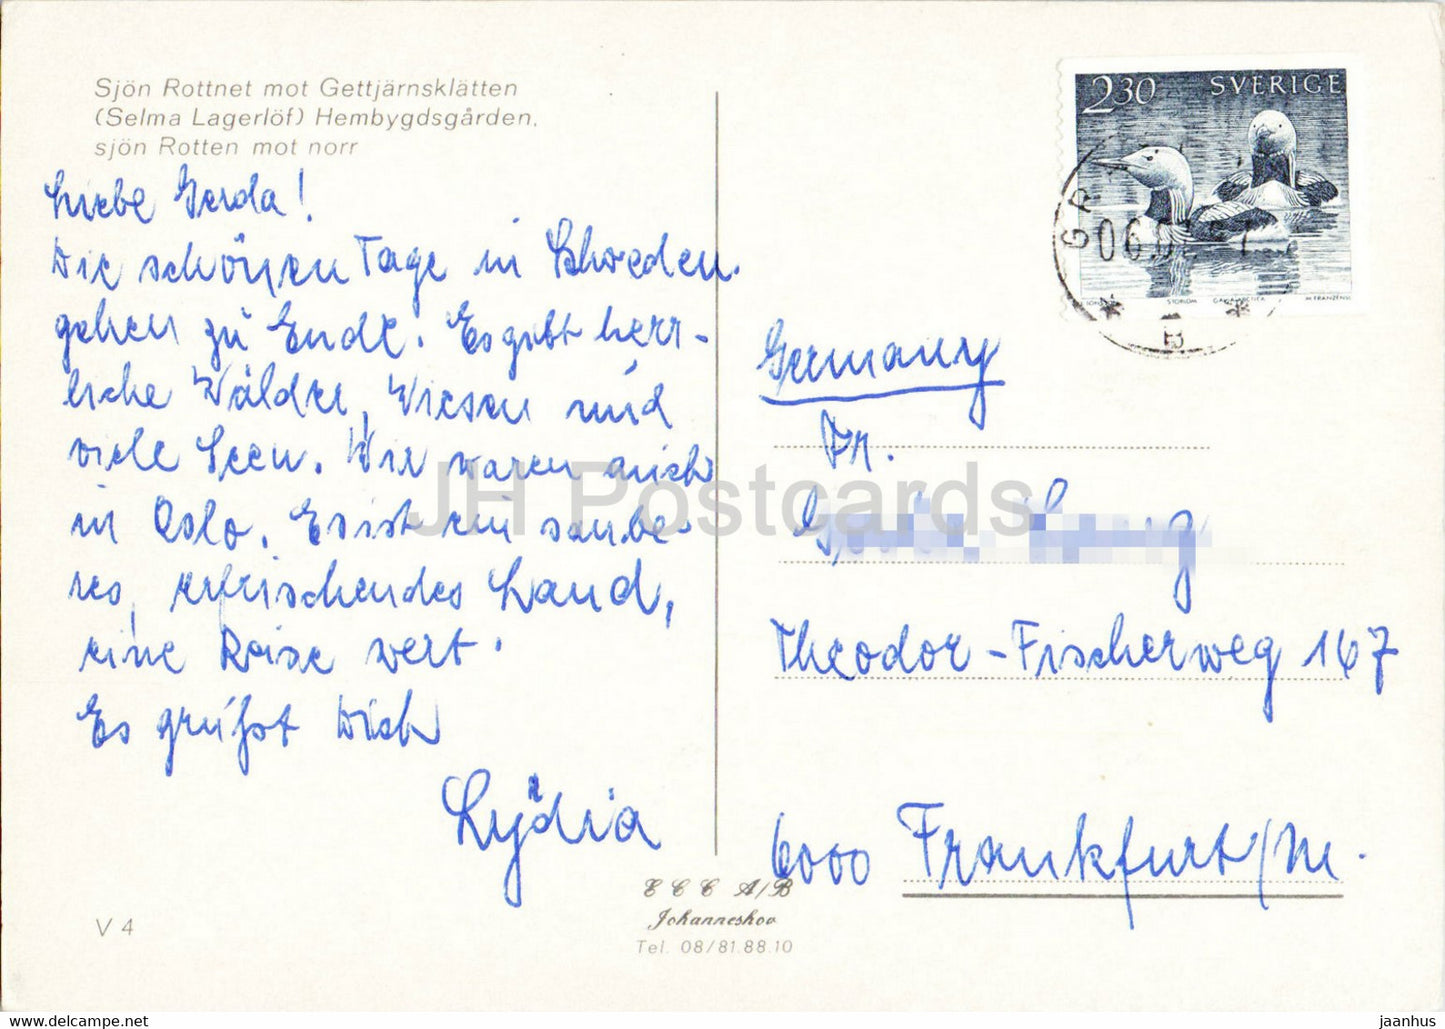 Sjön Rottnet mot Gettjärnsklätten
(Selma Lagerlöf) Hembygdsgården,
sjön Rotten mot norr
Liebe Gerda!
Die schönen Tage in Schweden
gehen zu Ende. Es gibt herr-
liche Wälder, Wiesen und
viele Seen. Wir waren auch
in Oslo. Es ist ein saube-
res, erfrischendes Land,
eine Reise wert.
Es grüßt Dich
Lydia
V 4
2.30 SVERIGE
STORLOM GAVIA ARCTICA M.FRANZÉN SC
06.02
B
Germany
Fr.
Theodor-Fischerweg 167
6000 Frankfurt/M.
CCC A/B
Johanneshov
Tel. 08/81.88.10
JH Postcards
www.hippostcard.com
jaanhus